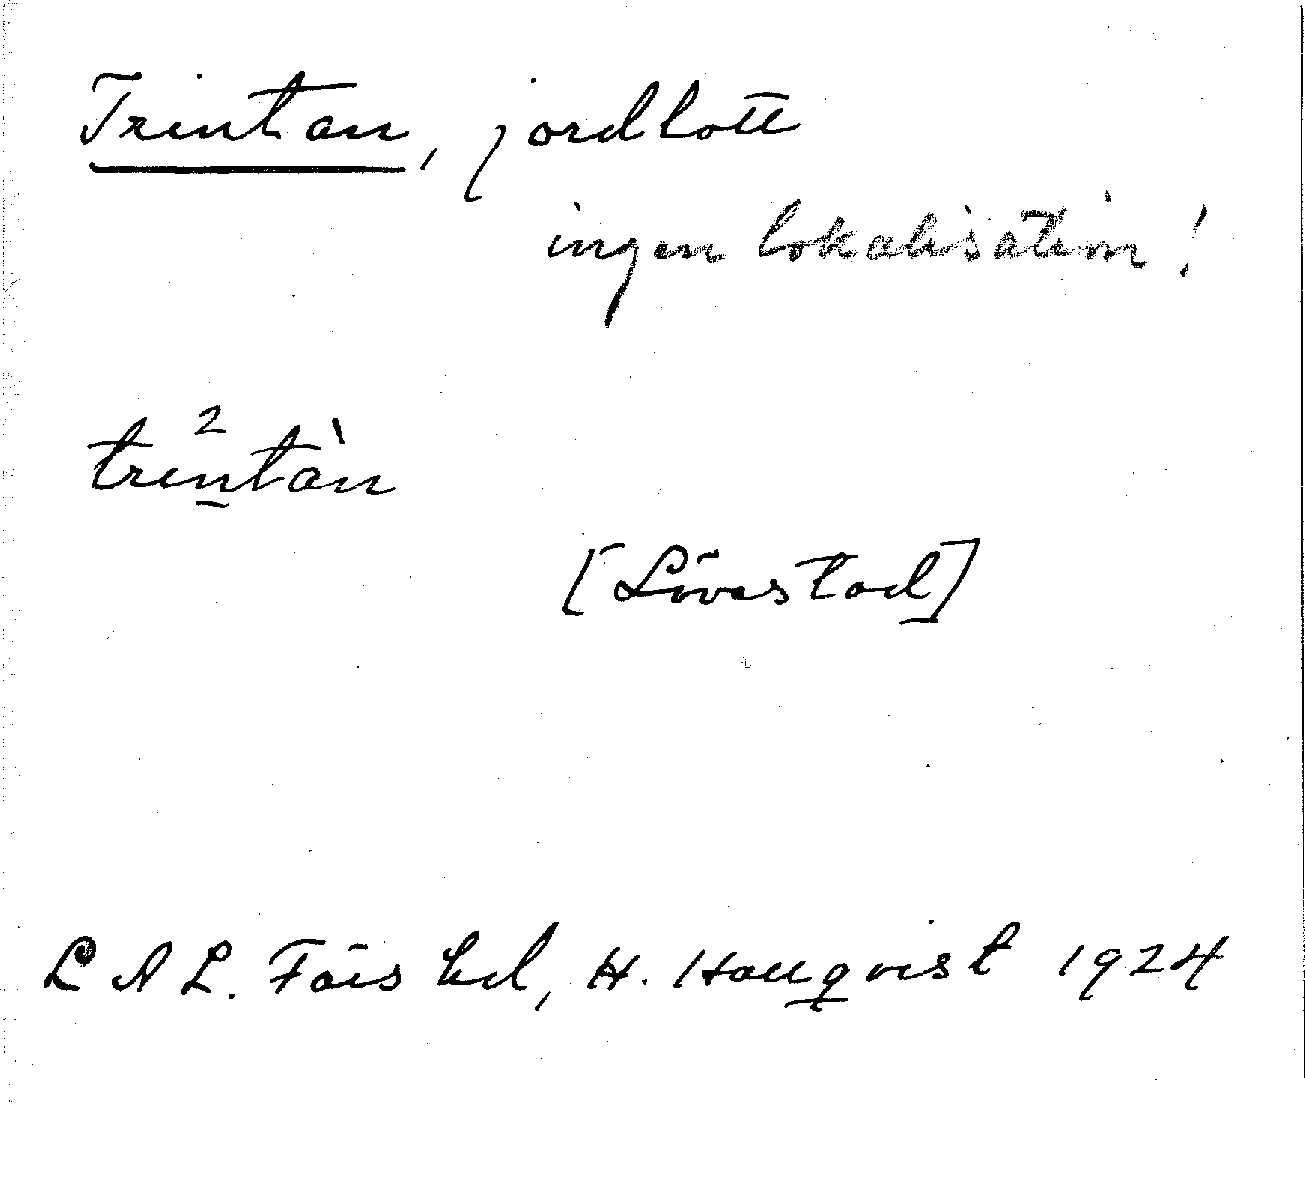 Trintan, jordlott
ingen lokalisation!
trintàn
[Lövestad]
L A L. Färs hd, H. Hallqvist 1924